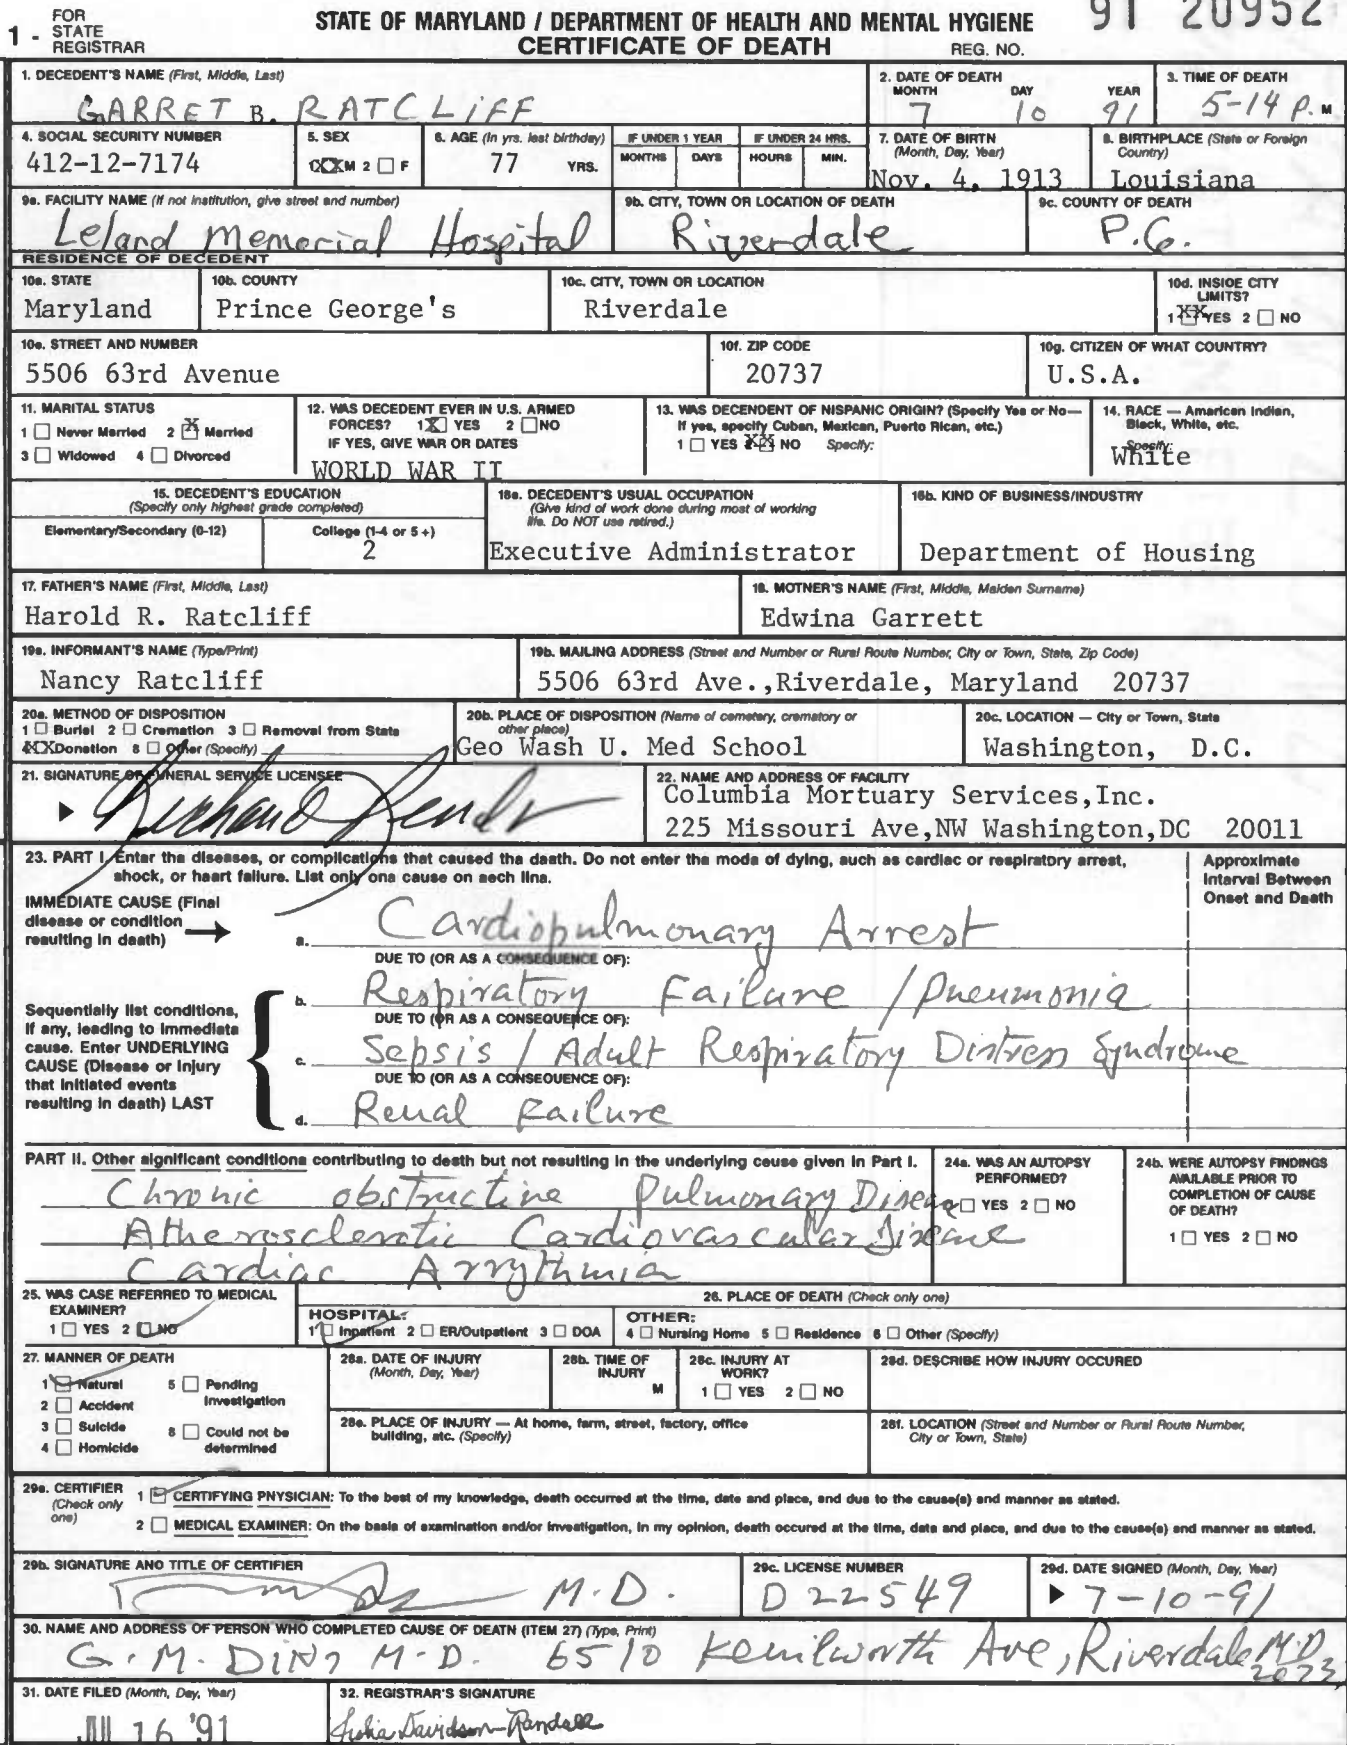 FOR
1 - STATE
REGISTRAR
STATE OF MARYLAND / DEPARTMENT OF HEALTH AND MENTAL HYGIENE
CERTIFICATE OF DEATH
REG. NO.
91 20952
1. DECEDENT'S NAME (First, Middle, Last)
GARRET B. RATCLIFF
2. DATE OF DEATH
MONTH DAY YEAR
7 10 91
3. TIME OF DEATH
5-14 P. M
4. SOCIAL SECURITY NUMBER
412-12-7174
5. SEX
1 XX M 2 F
6. AGE (In yrs. last birthday)
77 YRS.
IF UNDER 1 YEAR
MONTHS DAYS
IF UNDER 24 HRS.
HOURS MIN.
7. DATE OF BIRTN
(Month, Day, Year)
Nov. 4, 1913
8. BIRTHPLACE (State or Foreign
Country)
Louisiana
9a. FACILITY NAME (If not institution, give street and number)
Leland Memorial Hospital
9b. CITY, TOWN OR LOCATION OF DEATH
Riverdale
9c. COUNTY OF DEATH
P.G.
RESIDENCE OF DECEDENT
10a. STATE
Maryland
10b. COUNTY
Prince George's
10c. CITY, TOWN OR LOCATION
Riverdale
10d. INSIDE CITY
LIMITS?
1 XX YES 2 NO
10e. STREET AND NUMBER
5506 63rd Avenue
10f. ZIP CODE
20737
10g. CITIZEN OF WHAT COUNTRY?
U.S.A.
11. MARITAL STATUS
1 Never Married 2 X Married
3 Widowed 4 Divorced
12. WAS DECEDENT EVER IN U.S. ARMED
FORCES? 1 X YES 2 NO
IF YES, GIVE WAR OR DATES
WORLD WAR II
13. WAS DECENDENT OF NISPANIC ORIGIN? (Specify Yes or No—
If yes, specify Cuban, Mexican, Puerto Rican, etc.)
1 YES 2 XX NO Specify:
14. RACE — American Indian,
Black, White, etc.
Specify:
White
15. DECEDENT'S EDUCATION
(Specify only highest grade completed)
Elementary/Secondary (0-12)
College (1-4 or 5 +)
2
16a. DECEDENT'S USUAL OCCUPATION
(Give kind of work done during most of working
life. Do NOT use retired.)
Executive Administrator
16b. KIND OF BUSINESS/INDUSTRY
Department of Housing
17. FATHER'S NAME (First, Middle, Last)
Harold R. Ratcliff
18. MOTNER'S NAME (First, Middle, Maiden Surname)
Edwina Garrett
19a. INFORMANT'S NAME (Type/Print)
Nancy Ratcliff
19b. MAILING ADDRESS (Street and Number or Rural Route Number, City or Town, State, Zip Code)
5506 63rd Ave.,Riverdale, Maryland 20737
20a. METNOD OF DISPOSITION
1 Burial 2 Cremation 3 Removal from State
4 XX Donation 8 Other (Specify)
20b. PLACE OF DISPOSITION (Name of cemetery, crematory or
other place)
Geo Wash U. Med School
20c. LOCATION — City or Town, State
Washington, D.C.
21. SIGNATURE OF FUNERAL SERVICE LICENSEE
22. NAME AND ADDRESS OF FACILITY
Columbia Mortuary Services,Inc.
225 Missouri Ave,NW Washington,DC 20011
23. PART I. Enter the diseases, or complications that caused the death. Do not enter the mode of dying, such as cardiac or respiratory arrest,
shock, or heart failure. List only one cause on each line.
Approximate
Interval Between
Onset and Death
IMMEDIATE CAUSE (Final
disease or condition
resulting in death)
a. Cardiopulmonary Arrest
DUE TO (OR AS A CONSEQUENCE OF):
b. Respiratory Failure / Pneumonia
DUE TO (OR AS A CONSEQUENCE OF):
Sequentially list conditions,
if any, leading to immediate
cause. Enter UNDERLYING
CAUSE (Disease or injury
that initiated events
resulting in death) LAST
c. Sepsis / Adult Respiratory Distress Syndrome
DUE TO (OR AS A CONSEQUENCE OF):
d. Renal Failure
PART II. Other significant conditions contributing to death but not resulting in the underlying cause given in Part I.
Chronic obstructive Pulmonary Disease
Atherosclerotic Cardiovascular Disease
Cardiac Arrythmia
24a. WAS AN AUTOPSY
PERFORMED?
1 YES 2 NO
24b. WERE AUTOPSY FINDINGS
AVAILABLE PRIOR TO
COMPLETION OF CAUSE
OF DEATH?
1 YES 2 NO
25. WAS CASE REFERRED TO MEDICAL
EXAMINER?
1 YES 2 NO
26. PLACE OF DEATH (Check only one)
HOSPITAL:
1 Inpatient 2 ER/Outpatient 3 DOA
OTHER:
4 Nursing Home 5 Residence 6 Other (Specify)
27. MANNER OF DEATH
1 Natural 5 Pending
Investigation
2 Accident
3 Suicide 8 Could not be
4 Homicide determined
28a. DATE OF INJURY
(Month, Day, Year)
28b. TIME OF
INJURY
M
28c. INJURY AT
WORK?
1 YES 2 NO
28d. DESCRIBE HOW INJURY OCCURED
28e. PLACE OF INJURY — At home, farm, street, factory, office
building, etc. (Specify)
28f. LOCATION (Street and Number or Rural Route Number,
City or Town, State)
29a. CERTIFIER
(Check only
one)
1 CERTIFYING PNYSICIAN: To the best of my knowledge, death occurred at the time, date and place, and due to the cause(s) and manner as stated.
2 MEDICAL EXAMINER: On the basis of examination and/or investigation, in my opinion, death occured at the time, data and place, and due to the cause(s) and manner as stated.
29b. SIGNATURE AND TITLE OF CERTIFIER
M.D.
29c. LICENSE NUMBER
D 22549
29d. DATE SIGNED (Month, Day, Year)
7-10-91
30. NAME AND ADDRESS OF PERSON WHO COMPLETED CAUSE OF DEATN (ITEM 27) (Type, Print)
G. M. DIN, M.D. 6510 Kenilworth Ave, Riverdale M.D
31. DATE FILED (Month, Day, Year)
JUL 16 '91
32. REGISTRAR'S SIGNATURE
Julia Davidson-Randall